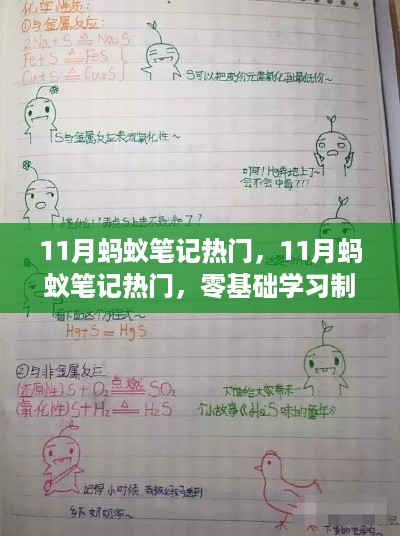 化学性质:
①与金属反应:
2Na+S △ Na₂S
Fe+S △ FeS
Cu+S △ Cu₂S
S可以把变价元素氧化到最低价~
S与金属反应表现氧化性~
啊啊!Hg弄地上了~
会不会中毒???
11月蚂蚁笔记热门，11月蚂
蚁笔记热门，零基础学习制
Hg+S=HgS
②与非金属反应:
(还原性)S+O₂ 点燃 SO₂
(氧化性)S+H₂ △ H₂S
下面给大家带来
个小故事《H₂S味的童年》
记得小时候,我被妈妈送到
乡下奶奶家~